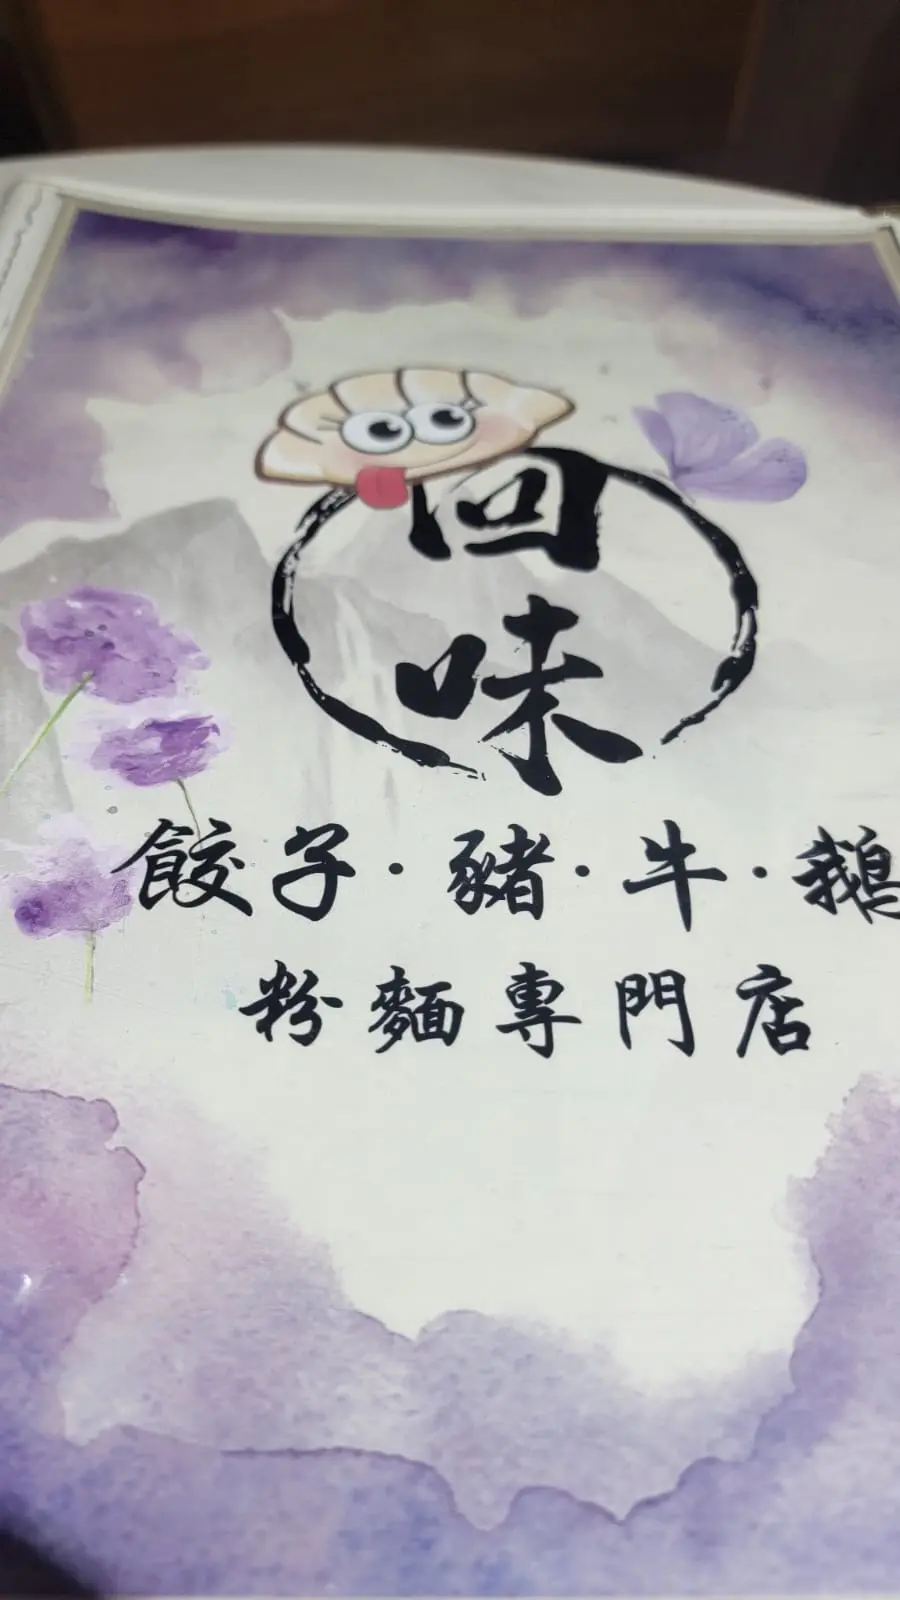 回
味
餃子·豬·牛·鵝
粉麵專門店